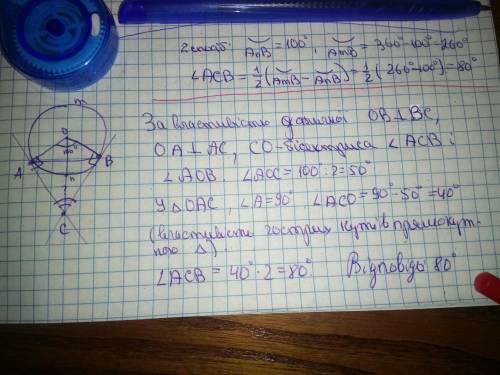 2 спосіб: AnB = 100°, AmB = 360°-100°=260°
∠ACB = 1/2 (AmB - AnB) = 1/2 (260°-100°) = 80°
m
O
100°
A
B
n
C
За властивістю дотичної OB⊥BC,
OA⊥AC, CO-бісектриса ∠ACB і
∠AOB. ∠AOC = 100°:2=50°
У △OAC, ∠A=90°, ∠ACO=90°-50°=40°
(властивість гострих кутів в прямокут-
ного △).
∠ACB = 40°·2=80°. Відповідь: 80°